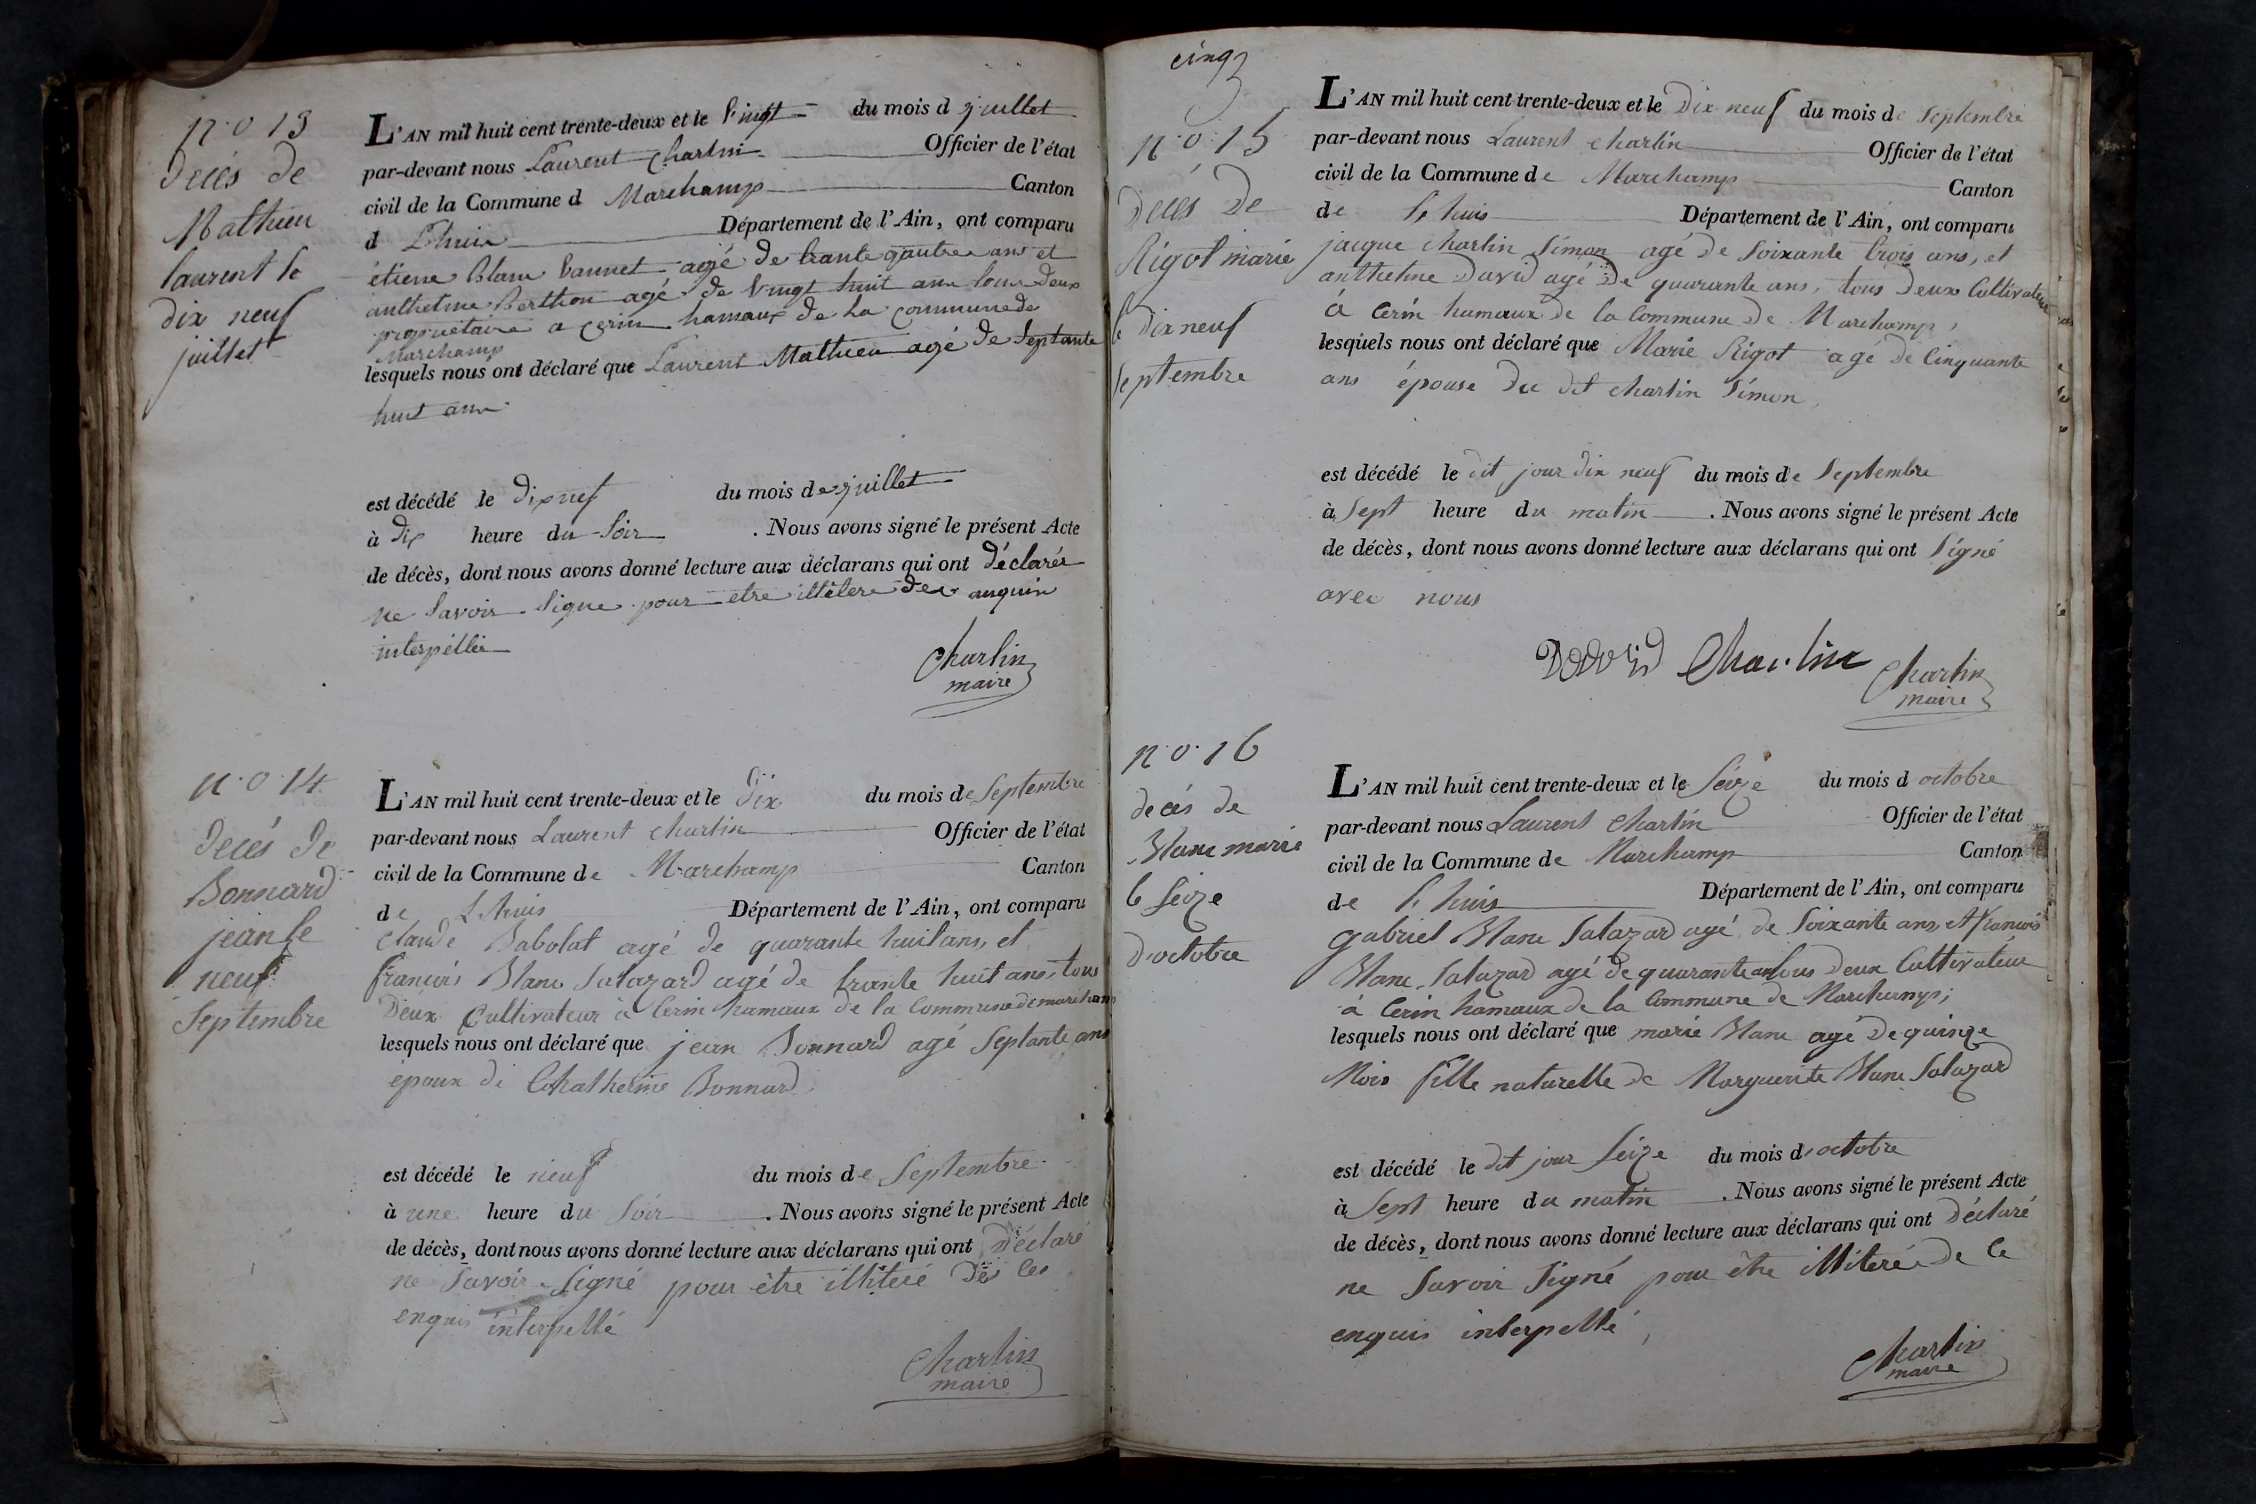 n.o 13
décés de
Mathieu
laurent le
dix neuf
juillet
L'AN mil huit cent trente-deux et le Vingt du mois d juillet
par-devant nous Laurent Charlin Officier de l'état
civil de la Commune d Marchamp Canton
d Lhuis Département de l'Ain, ont comparu
étiene Blanc Vannet agé de trante quatre ans et
anthelme Berthon agé de Vingt huit ans tous deux
propriétaire a cerin hamaux de la commune de
Marchamp
lesquels nous ont déclaré que Laurent Mathieu agé de Septante
huit ans
est décédé le dix nef du mois de juillet
à dix heure du Soir . Nous avons signé le présent Acte
de décès, dont nous avons donné lecture aux déclarans qui ont déclarés
ne Savoir Signe pour etre illitere de anquin
interpéllée
Charlin
maire
n.o 14
Décés de
Bonnard
jean le
neuf
Septembre
L'AN mil huit cent trente-deux et le dix du mois de Septembre
par-devant nous Laurent Charlin Officier de l'état
civil de la Commune de Marchamp Canton
de Lhuis Département de l'Ain, ont comparu
Claude Babolat agé de quarante huit ans, et
françois Blanc Salazard agé de trante huit ans tous
Deux Cultivateur à Cerin hamaux de la Commune de marchamp
lesquels nous ont déclaré que jean Bonnard agé Septante ans
époux de Chatherine Bonnard
est décédé le neuf du mois de Septembre
à une heure du Soir . Nous avons signé le présent Acte
de décès, dont nous avons donné lecture aux déclarans qui ont Déclaré
ne Savoir Signé pour être illiteré de ce
enquis interpellé
Charlin
maire
cinq
n.o 15
Décés De
Rigot marie
le dix neuf
Septembre
L'AN mil huit cent trente-deux et le Dix neuf du mois de Septembre
par-devant nous Laurent Charlin Officier de l'état
civil de la Commune de Marchamp Canton
de Lhuis Département de l'Ain, ont comparu
jacque Charlin Simon agé de Soixante trois ans, et
anthelme David agé De quarante ans, tous Deux Cultivateur
à Cerin hamaux de la Commune De Marchamp,
lesquels nous ont déclaré que Marie Rigot agé de Cinquante
ans épouse du dit Charlin Simon,
est décédé le dit jour dix neuf du mois de Septembre
à Sept heure du matin . Nous avons signé le présent Acte
de décès, dont nous avons donné lecture aux déclarans qui ont Signé
avec nous
David Charlin Charlin
maire
n.o. 16
décés de
Blanc marie
le Seize
d'octobre
L'AN mil huit cent trente-deux et le Seize du mois d octobre
par-devant nous Laurent Charlin Officier de l'état
civil de la Commune de Marchamp Canton
de Lhuis Département de l'Ain, ont comparu
gabriel Blanc Salazard agé de Soixante ans, et françois
Blanc Salazard agé de quarante ans tous deux Cultivateur
à Cerin hamaux de la Commune de Marchamp;
lesquels nous ont déclaré que marie Blanc agé De quinze
Mois fille naturelle de Marguerite Blanc Salazard
est décédé le dit jour Seize du mois d'octobre
à Sept heure du matin . Nous avons signé le présent Acte
de décès, dont nous avons donné lecture aux déclarans qui ont Déclaré
ne Savoir Signé pour être illiteré de ce
enquis interpellé,
Charlin
maire